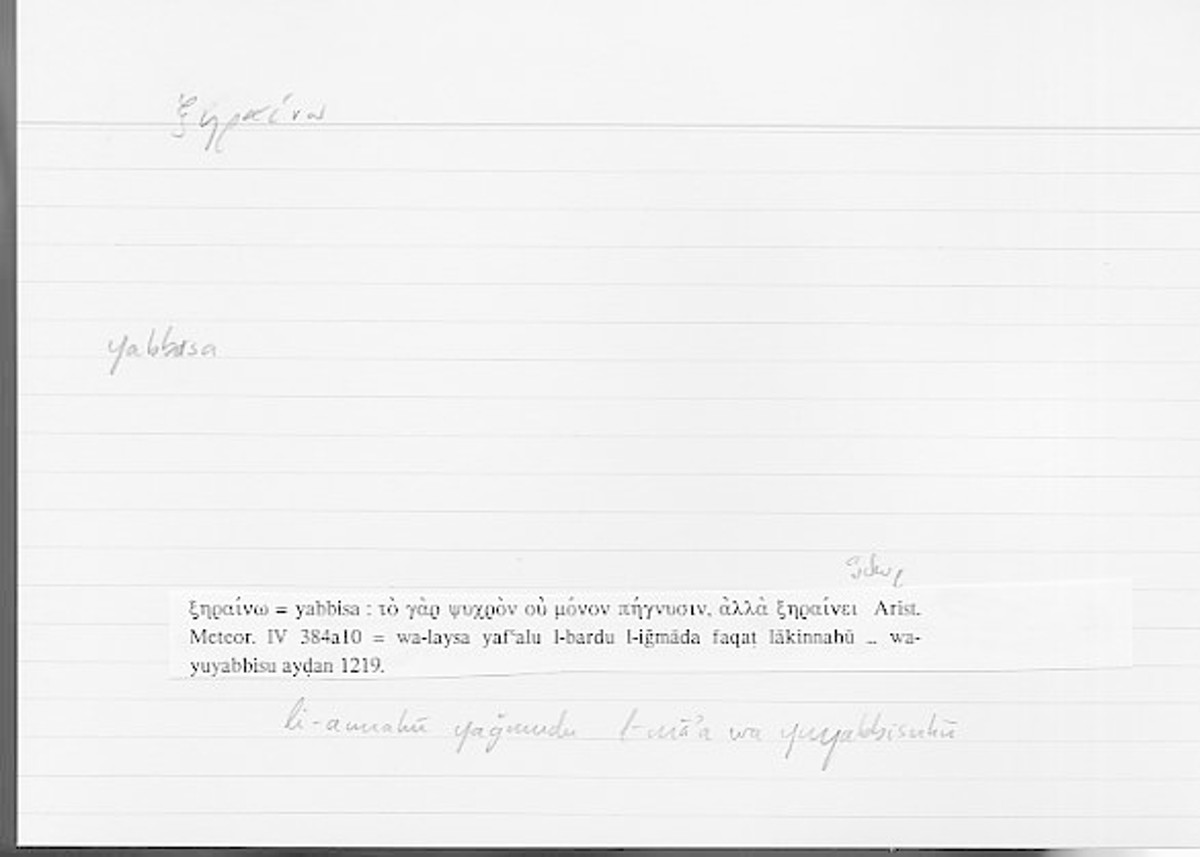 ξηραίνω
yabbisa
ὕδωρ
ξηραίνω = yabbisa : τὸ γὰρ ψυχρὸν οὐ μόνον πήγνυσιν, ἀλλὰ ξηραίνει Arist.
Meteor. IV 384a10 = wa-laysa yafʿalu l-bardu l-iǧmāda faqaṭ lākinnahū ... wa-
yuyabbisu ayḍan 1219.
li-annahū yaǧmudu l-māʾa wa yuyabbisuhū